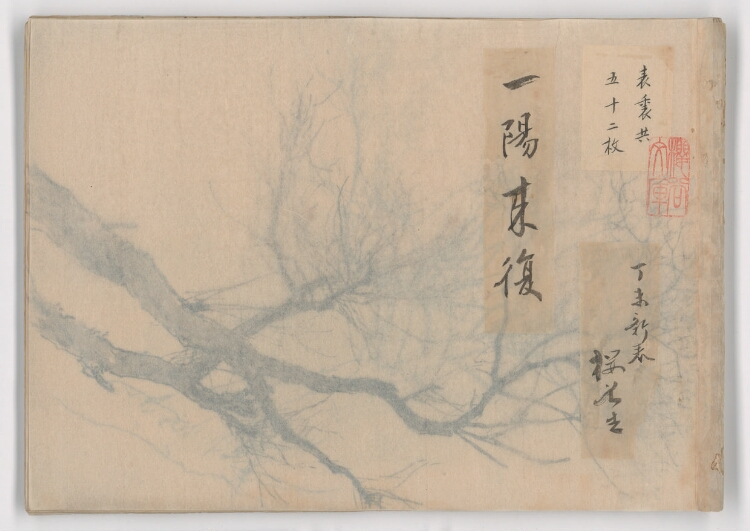 表裏共
五十二枚
一陽来復
丁未新春